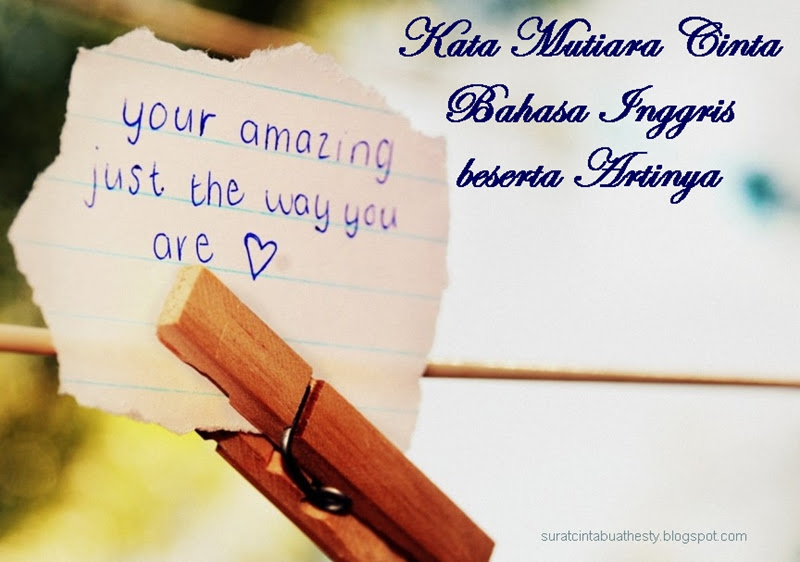 Kata Mutiara Cinta
Bahasa Inggris
beserta Artinya
your amazing
just the way you
are ♡
suratcintabuathesty.blogspot.com